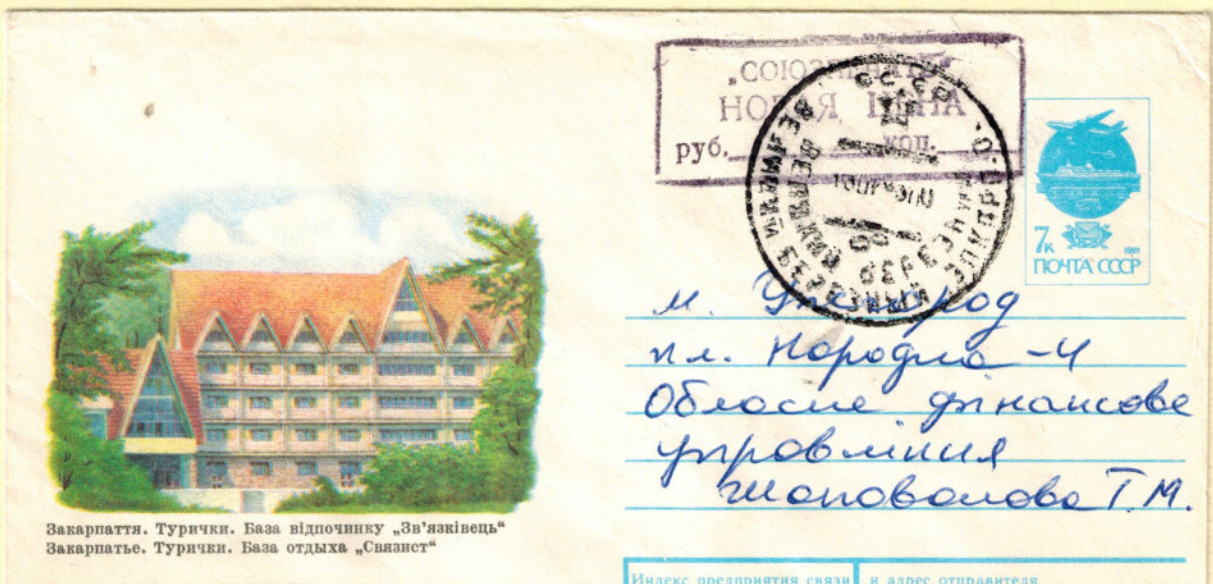 „СОЮЗПЕЧАТЬ"
НОВАЯ ЦЕНА
руб. коп.
7к
1991
ПОЧТА СССР
м. Ужгород
пл. Народна - 4
Обласне фінансове
управління
Шаповалова Т.М.
Закарпаття. Турички. База відпочинку „Зв'язківець"
Закарпатье. Турички. База отдыха „Связист"
Индекс предприятия связи и адрес отправителя